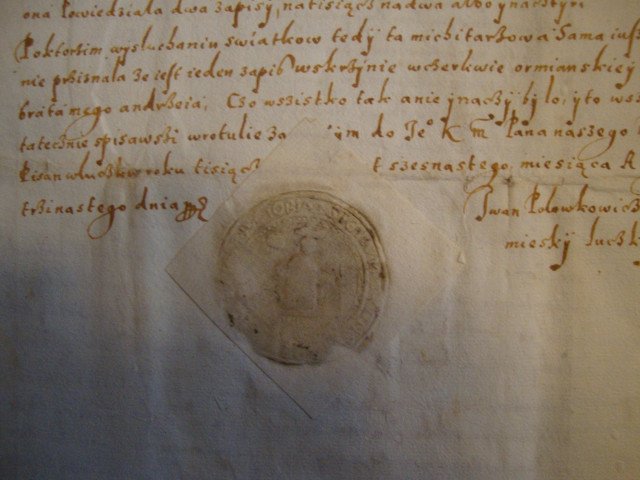 ona Powiedziala dwa zapisy, na tisiącz na dwa albo y na cztyri
Po ktorbim wysluchaniu swiatkow tedy ta michitarzowa sama iusz
nie prziznala ze iest ieden zapis w skrzynie w czerkwie ormianskiey
brata mego andrzeia, Czo wszistko tak a nie ynaczy bylo, y to wsz
tatecznie spisawszi w rotulie za ym do Jeo K M Pana naszego
Pisan w luczku w roku tisiącz t szesnastego, miesiąca
trzinastego dnia
Iwan Polowkowicz
mieský luczký